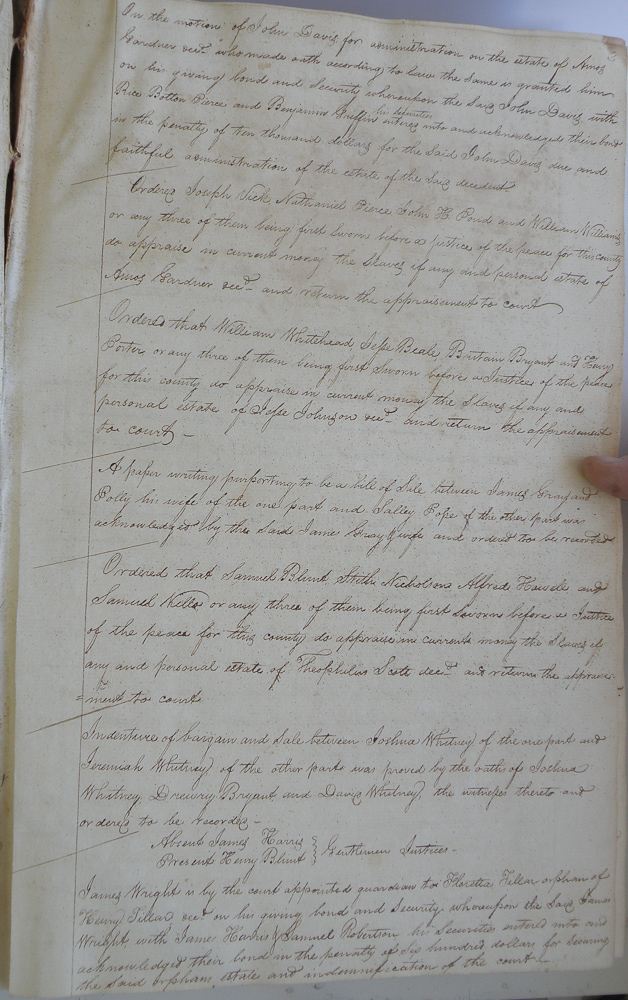 On the motion of John Davis for administration on the estate of Amos
Gardner decd. who made oath according to law the same is granted him
on his giving bond and Security whereupon the said John Davis with
Rice Bolton Pierce and Benjamin Ruffin his securities entered into and acknowledged their bond
in the penalty of ten thousand dollars for the said John Davis due and
faithful administration of the estate of the said decedent.
Ordered Joseph Nathaniel Pierce John H. Pond and William Williams
or any three of them being first sworn before a justice of the peace for this county
do appraise in current money the Slaves if any and personal estate of
Amos Gardner decd. and return the appraisement to court
Ordered that William Whitehead Jesse Beale, Britain Bryant and Henry
Porter, or any three of them being first Sworn before a Justice of the peace
for this county do appraise in current money the Slaves if any and
personal estate of Jesse Johnson decd. and return the appraisement
to court –
A paper writing purporting to be a bill of Sale between James Gray and
Polly his wife of the one part and Salley Pope of the other part was
acknowledged by the said James Gray & wife and ordered to be recorded
Ordered that Samuel Blunt Stith Nicholson Alfred Howell and
Samuel Kello or any three of them being first Sworn before a Justice
of the peace for this county do appraise in current money the Slaves if
any and personal estate of Theophilus Scott decd. and return the appraise-
=ment to court
Indenture of bargain and Sale between Joshua Whitney of the one part and
Jeremiah Whitney of the other part was proved by the oaths of Joshua
Whitney, Drewry Bryant and Davis Whitney, the witnesses thereto and
ordered to be recorded –
Absent James Harris } Gentlemen Justices –
Present Henry Blunt
James Wright is by the court appointed guardian to Tillar orphan of
Henry Tillar decd. on his giving bond and Security whereupon the said James
Wright with James Harris & Samuel Robertson his Securities entered into and
acknowledged their bond in the penalty of Six hundred dollars for securing
the said orphans estate and indemnification of the court –